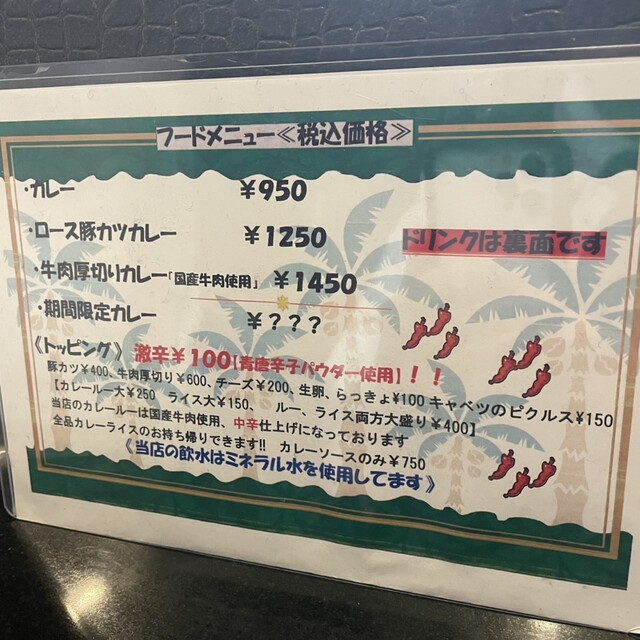 フードメニュー≪税込価格≫
・カレー ¥950
・ロース豚カツカレー ¥1250
ドリンクは裏面です
・牛肉厚切りカレー「国産牛肉使用」 ¥1450
・期間限定カレー ¥???
《トッピング》 激辛¥100【青唐辛子パウダー使用】!!
豚カツ¥400、牛肉厚切り¥600、チーズ¥200、生卵、らっきょ¥100 キャベツのピクルス¥150
【カレールー大¥250 ライス大¥150、 ルー、ライス両方大盛り¥400】
当店のカレールーは国産牛肉使用、中辛仕上げになっております
全品カレーライスのお持ち帰りできます!! カレーソースのみ¥750
《当店の飲水はミネラル水を使用してます》